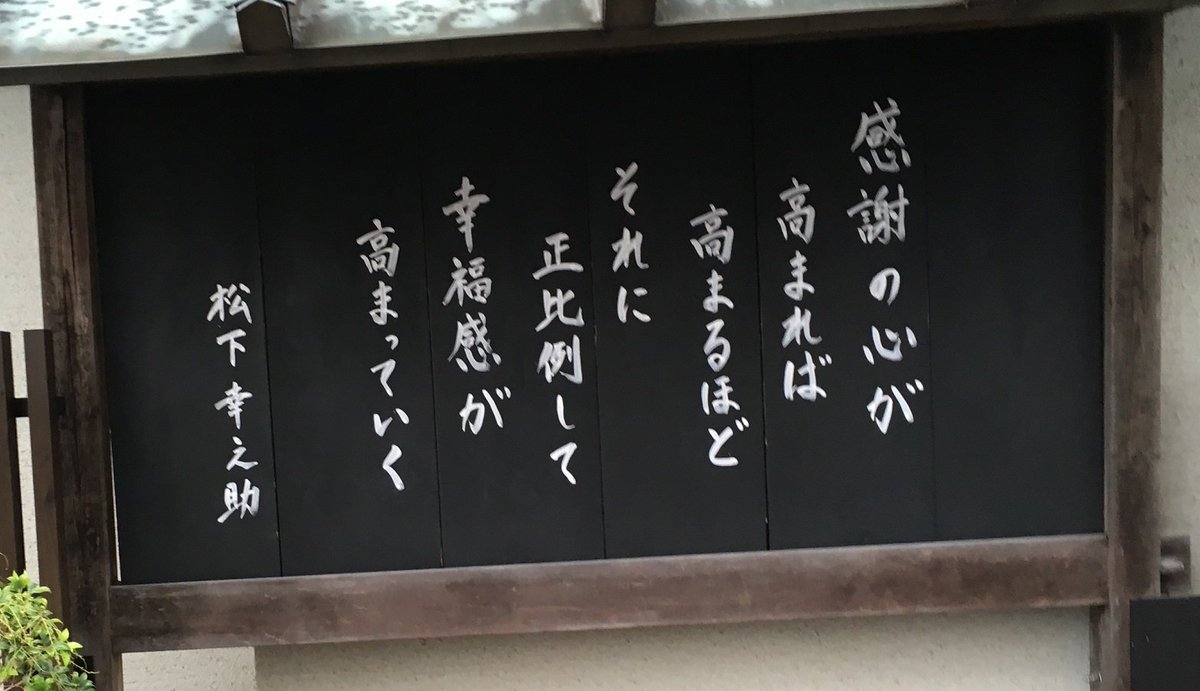 感謝の心が
高まれば
高まるほど
それに
正比例して
幸福感が
高まっていく
松下幸之助